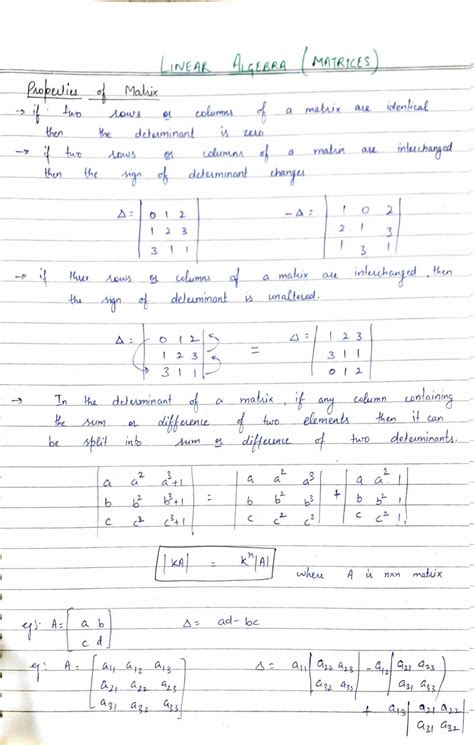 LINEAR ALGEBRA (MATRICES)
Properties of Matrix
→ if two rows or columns of a matrix are identical
then the determinant is zero
→ if two rows or columns of a matrix are interchanged
then the sign of determinant changes
Δ = | 0 1 2 | -Δ = | 1 0 2 |
| 1 2 3 | | 2 1 3 |
| 3 1 1 | | 1 3 1 |
→ if three rows or columns of a matrix are interchanged, then
the sign of determinant is unaltered.
Δ = | 0 1 2 | Δ = | 1 2 3 |
| 1 2 3 | = | 3 1 1 |
| 3 1 1 | | 0 1 2 |
→ In the determinant of a matrix, if any column containing
the sum or difference of two elements then it can
be split into sum or difference of two determinants.
| a a² a³+1 | = | a a² a³ | + | a a² 1 |
| b b² b³+1 | | b b² b³ | | b b² 1 |
| c c² c³+1 | | c c² c³ | | c c² 1 |
|KA| = Kⁿ|A|
where A is n×n matrix
eg: A = [ a b ] Δ = ad - bc
[ c d ]
eg: A = [ a11 a12 a13 ] Δ = a11 | a22 a23 | - a12 | a21 a23 |
[ a21 a22 a23 ] | a32 a33 | | a31 a33 |
[ a31 a32 a33 ] + a13 | a21 a22 |
| a31 a32 |